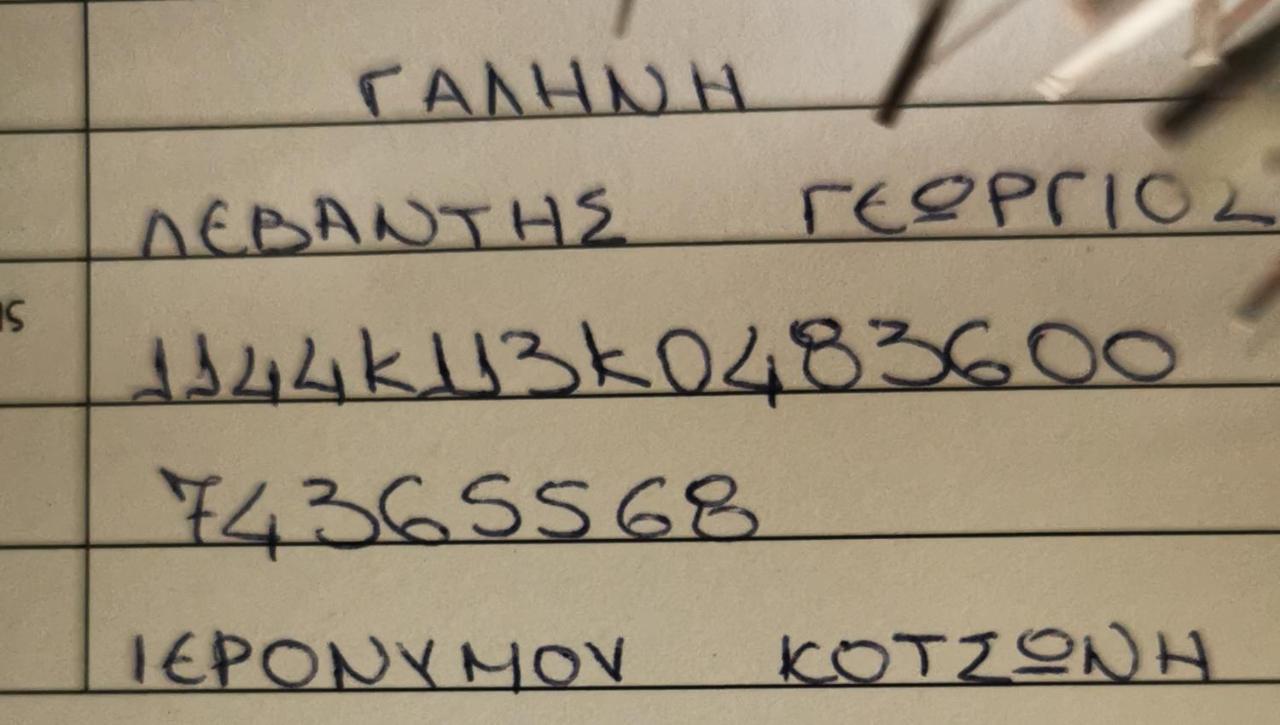 ΓΑΛΗΝΗ
ΛΕΒΑΝΤΗΣ ΓΕΩΡΓΙΟΣ
1144K113K0483600
74365568
ΙΕΡΟΝΥΜΟΥ ΚΟΤΣΩΝΗ